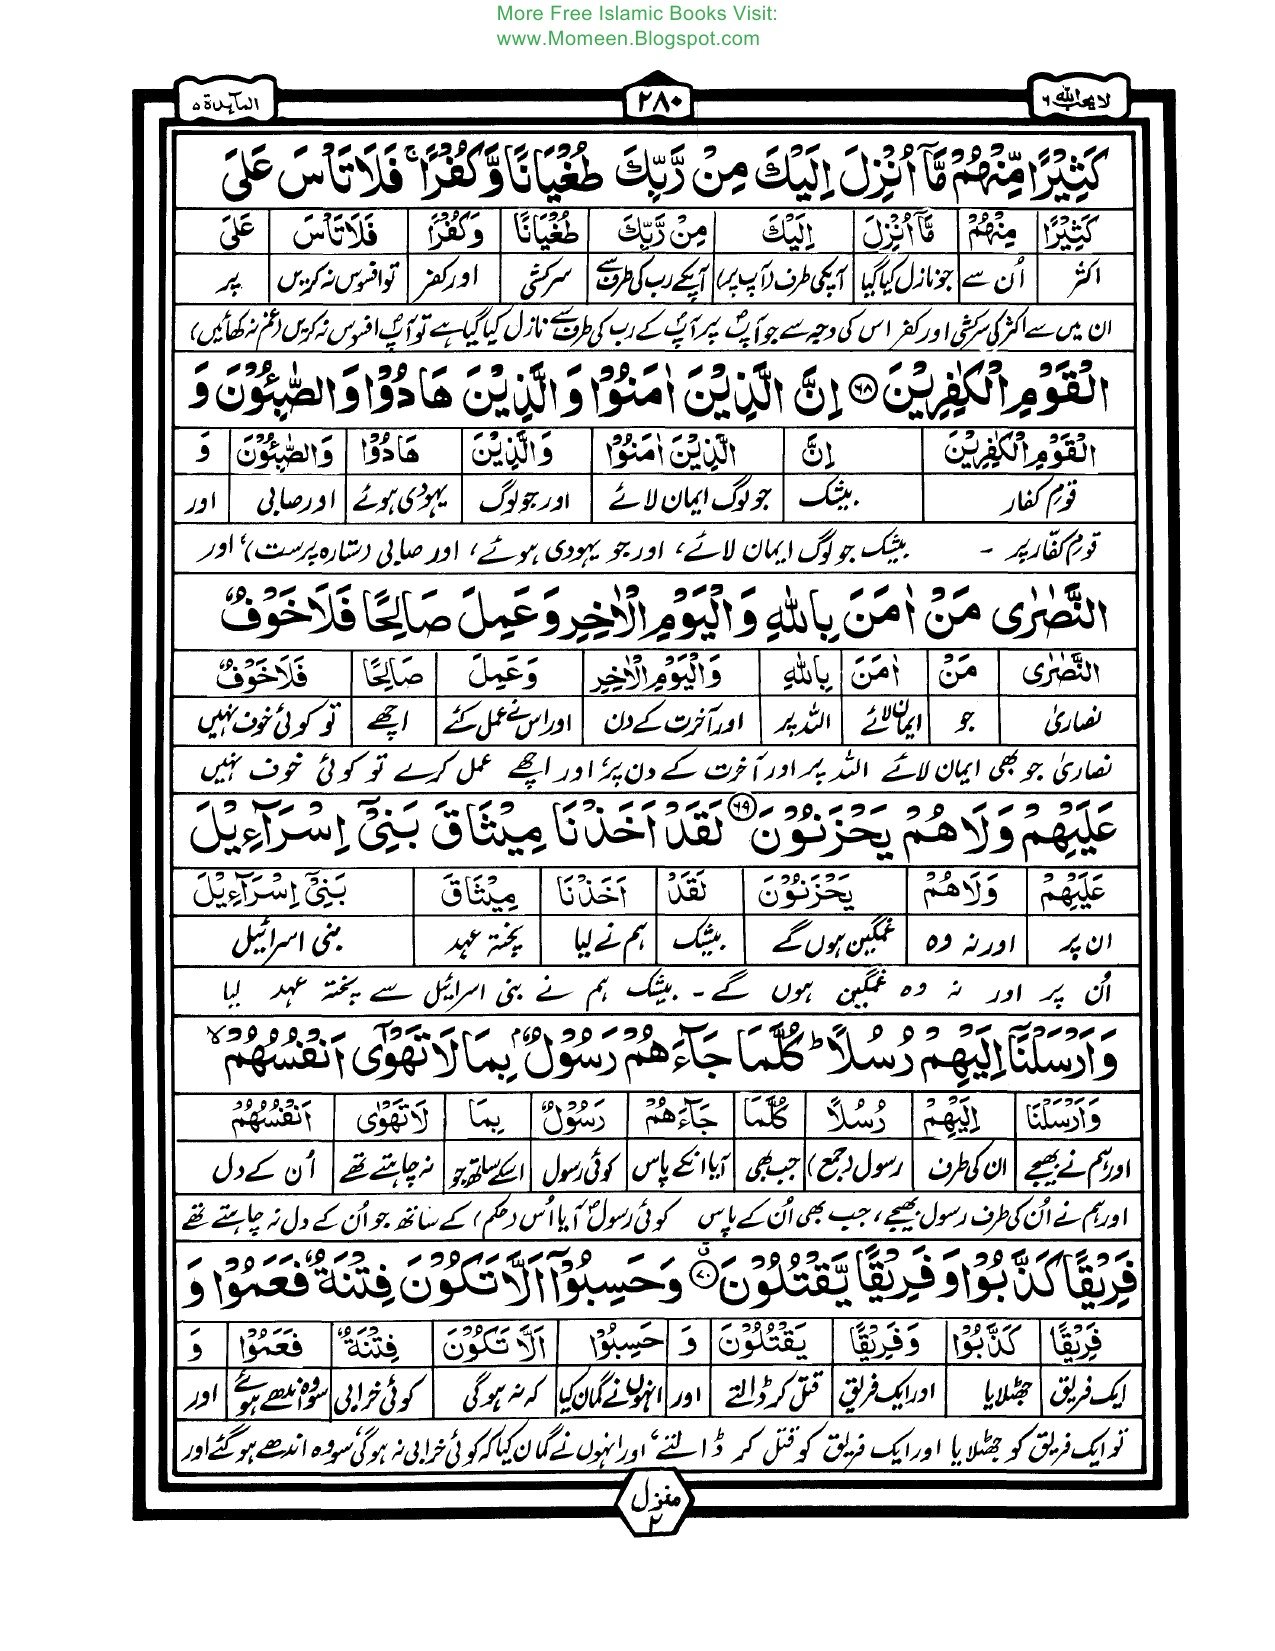 More Free Islamic Books Visit:
www.Momeen.Blogspot.com
لا یحب اللہ ۶
۲۸۰
المآىِٕدة ۵
كَثِیْرًا مِّنْهُمْ مَّاۤ اُنْزِلَ اِلَیْكَ مِنْ رَّبِّكَ طُغْیَانًا وَّكُفْرًا ۚ فَلَا تَاْسَ عَلَی
كَثِیْرًا مِنْهُمْ مَّاۤ اُنْزِلَ اِلَیْكَ مِنْ رَّبِّكَ طُغْیَانًا وَكُفْرًا فَلَا تَاْسَ عَلَی
اکثر اُن سے جو نازل کیا گیا آپکی طرف (آپ پر) آپکے رب کی طرف سے سرکشی اور کفر تو افسوس نہ کریں پر
ان میں سے اکثر کی سرکشی اور کفر اس کی وجہ سے جو آپؐ پر آپؐ کے رب کی طرف سے نازل کیا گیا ہے تو آپؐ افسوس نہ کریں (غم نہ کھائیں)
الْقَوْمِ الْكٰفِرِیْنَ ۝۶۸ اِنَّ الَّذِیْنَ اٰمَنُوْا وَالَّذِیْنَ هَادُوْا وَالصّٰبِـُٔوْنَ وَ
الْقَوْمِ الْكٰفِرِیْنَ اِنَّ الَّذِیْنَ اٰمَنُوْا وَالَّذِیْنَ هَادُوْا وَالصّٰبِـُٔوْنَ وَ
قوم کفار بیشک جو لوگ ایمان لائے اور جو لوگ یہودی ہوئے اور صابی اور
قوم کفّار پر - بیشک جو لوگ ایمان لائے، اور جو یہودی ہوئے، اور صابی (ستارہ پرست)، اور
النَّصٰرٰی مَنْ اٰمَنَ بِاللّٰهِ وَالْیَوْمِ الْاٰخِرِ وَعَمِلَ صَالِحًا فَلَا خَوْفٌ
النَّصٰرٰی مَنْ اٰمَنَ بِاللّٰهِ وَالْیَوْمِ الْاٰخِرِ وَعَمِلَ صَالِحًا فَلَا خَوْفٌ
نصاریٰ جو ایمان لائے اللہ پر اور آخرت کے دن اور اس نے عمل کئے اچھے تو کوئی خوف نہیں
نصاریٰ جو بھی ایمان لائے اللہ پر اور آخرت کے دن پر، اور اچھے عمل کرے تو کوئی خوف نہیں
عَلَیْهِمْ وَلَا هُمْ یَحْزَنُوْنَ ۝۶۹ لَقَدْ اَخَذْنَا مِیْثَاقَ بَنِیْۤ اِسْرَآءِیْلَ
عَلَیْهِمْ وَلَا هُمْ یَحْزَنُوْنَ لَقَدْ اَخَذْنَا مِیْثَاقَ بَنِیْۤ اِسْرَآءِیْلَ
ان پر اور نہ وہ غمگین ہوں گے بیشک ہم نے لیا پختہ عہد بنی اسرائیل
اُن پر اور نہ وہ غمگین ہوں گے - بیشک ہم نے بنی اسرائیل سے پختہ عہد لیا
وَاَرْسَلْنَاۤ اِلَیْهِمْ رُسُلًا ؕ كُلَّمَا جَآءَهُمْ رَسُوْلٌۢ بِمَا لَا تَهْوٰۤی اَنْفُسُهُمْ ۙ
وَاَرْسَلْنَا اِلَیْهِمْ رُسُلًا كُلَّمَا جَآءَهُمْ رَسُوْلٌ بِمَا لَا تَهْوٰی اَنْفُسُهُمْ
اور ہم نے بھیجے ان کی طرف رسول (جمع) جب بھی آیا انکے پاس کوئی رسول اسکے ساتھ جو نہ چاہتے تھے اُن کے دل
اور ہم نے اُن کی طرف رسول بھیجے، جب بھی اُن کے پاس کوئی رسولؑ آیا اُس (حکم) کے ساتھ جو اُن کے دل نہ چاہتے تھے
فَرِیْقًا كَذَّبُوْا وَفَرِیْقًا یَّقْتُلُوْنَ ۝۷۰ وَحَسِبُوْۤا اَلَّا تَكُوْنَ فِتْنَةٌ فَعَمُوْا وَ
فَرِیْقًا كَذَّبُوْا وَفَرِیْقًا یَقْتُلُوْنَ وَ حَسِبُوْۤا اَلَّا تَكُوْنَ فِتْنَةٌ فَعَمُوْا وَ
ایک فریق جھٹلایا اور ایک فریق قتل کر ڈالتے اور انہوں نے گمان کیا کہ نہ ہوگی کوئی خرابی سو وہ اندھے ہوئے اور
تو ایک فریق کو جھٹلایا اور ایک فریق کو قتل کر ڈالتے، اور انہوں نے گمان کیا کہ کوئی خرابی نہ ہوگی، سو وہ اندھے ہو گئے اور
منزل ۲